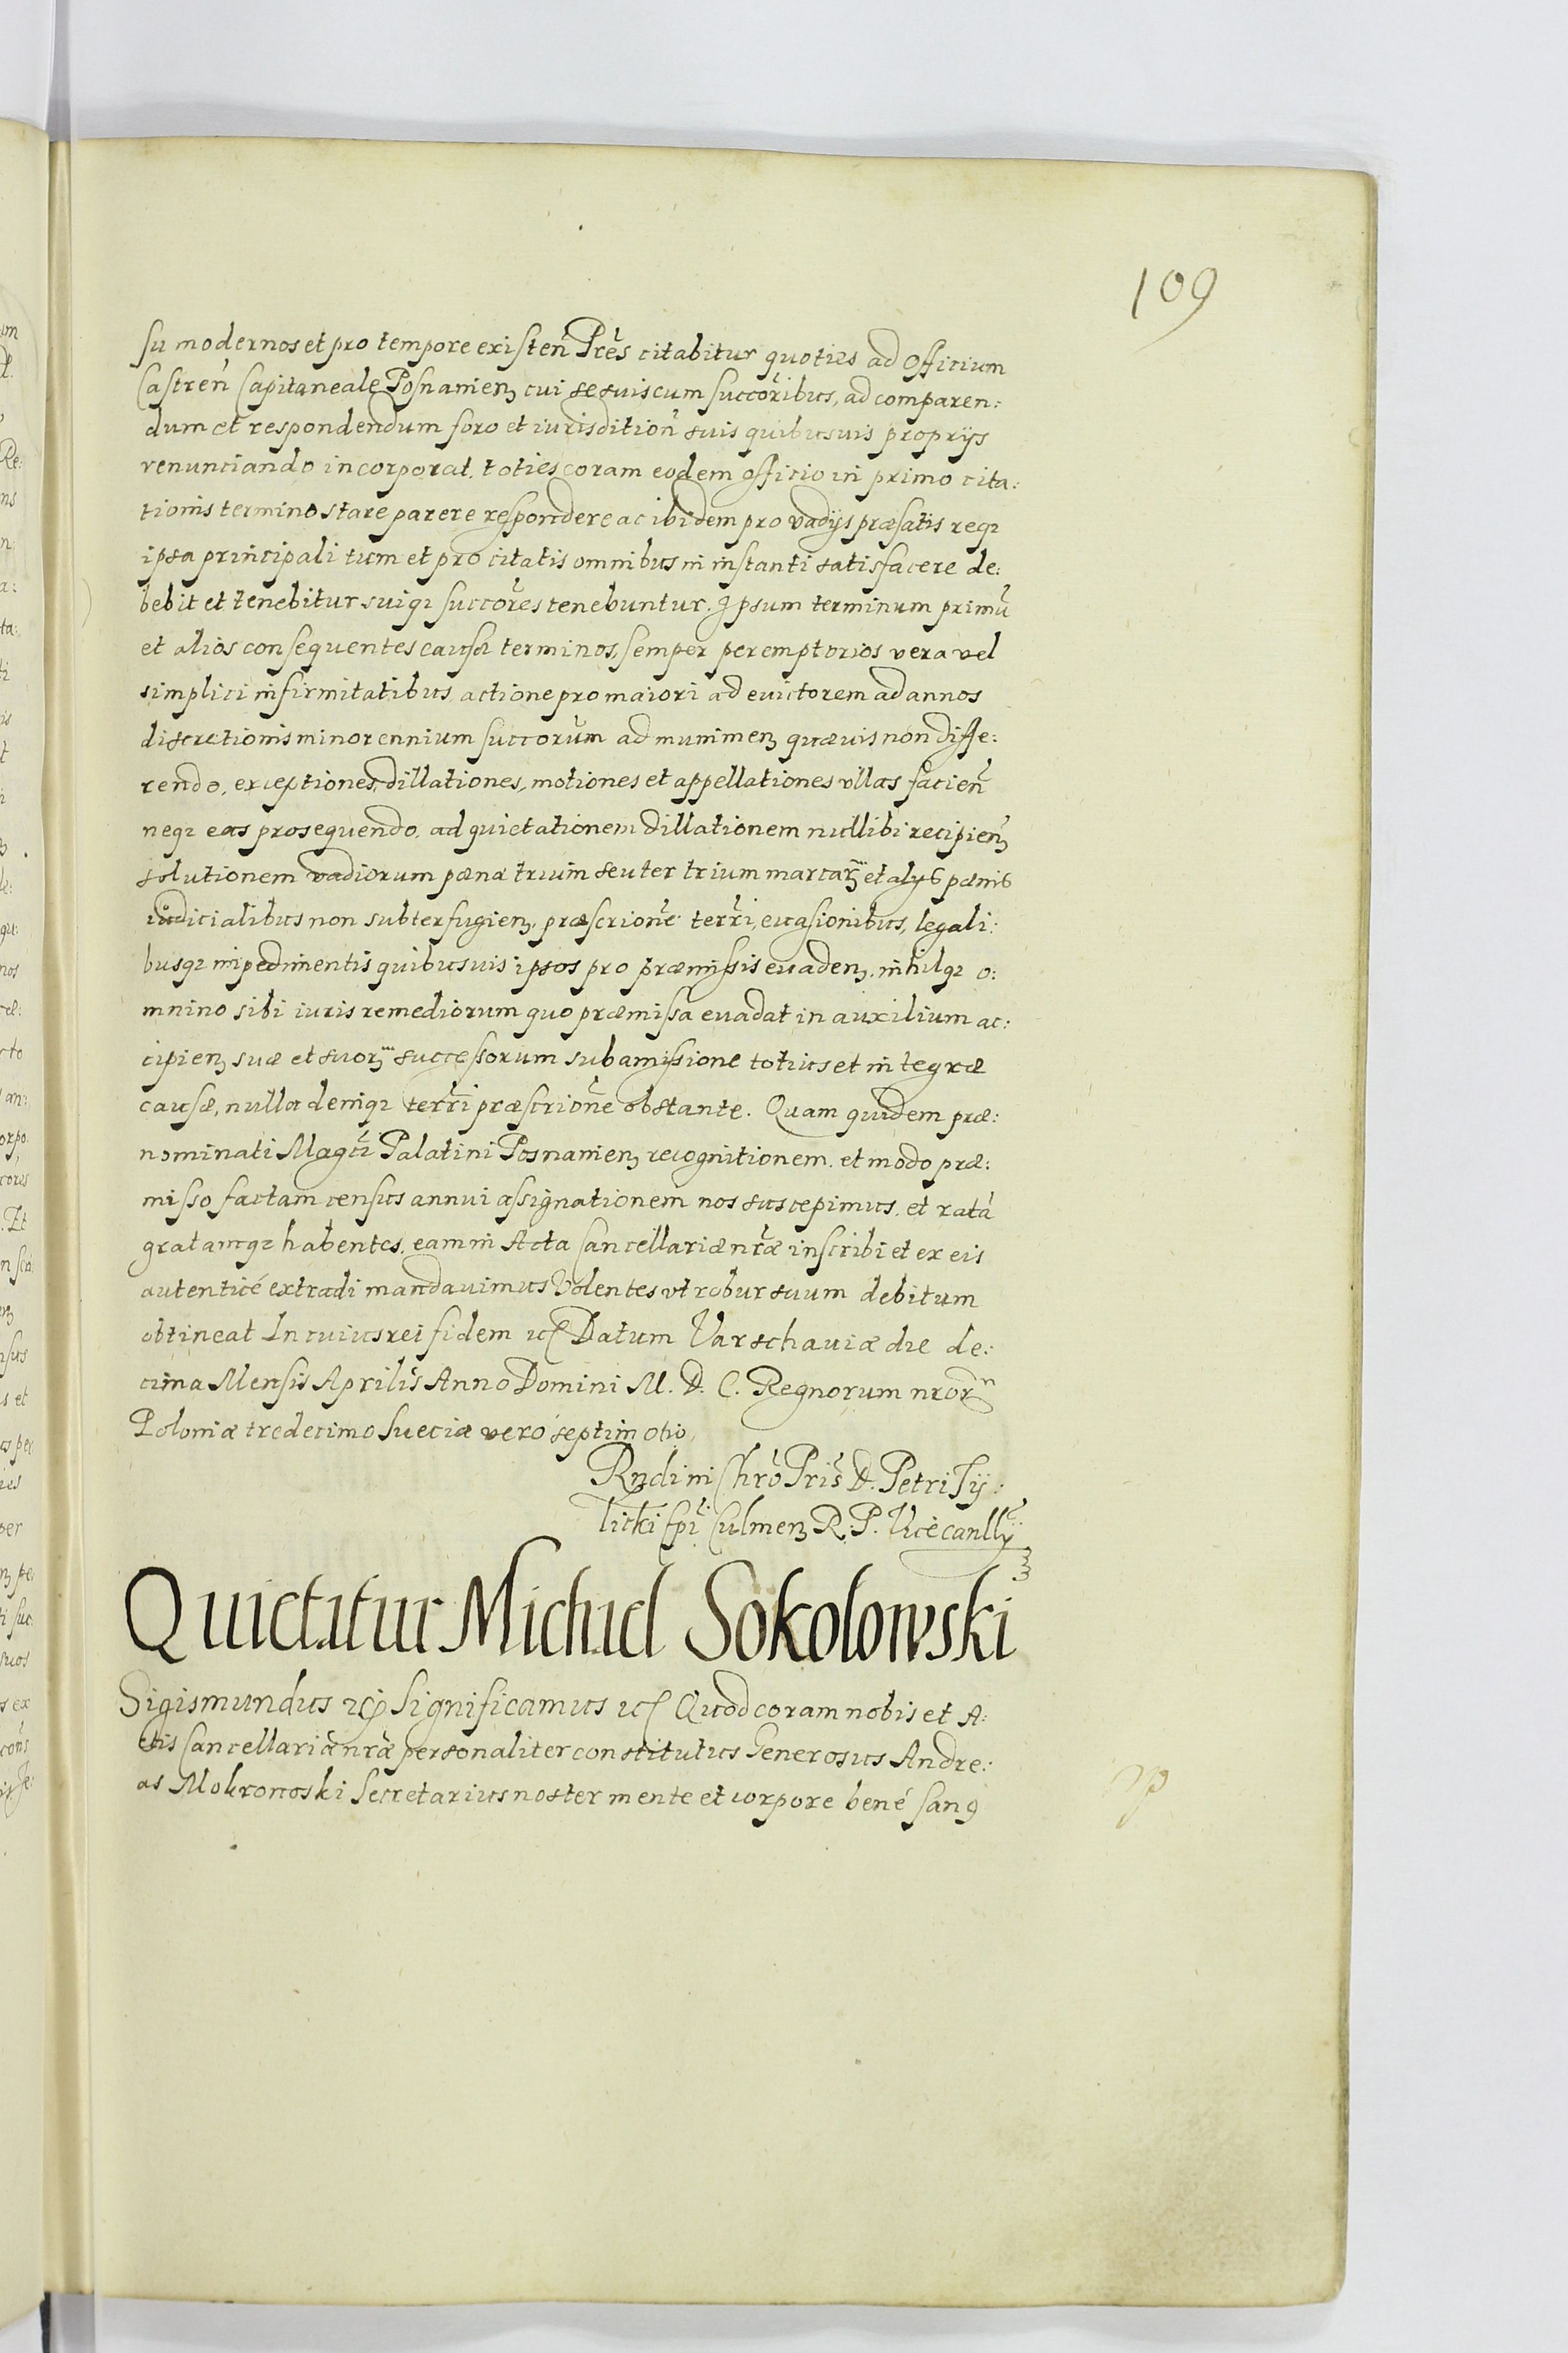 109
su modernos et pro tempore existen̄ Prēs citabitur quoties ad Officium
Castren̄ Capitaneale Posnanien̄ cui se suis cum succōribus, ad comparen:
dum et respondendum foro et iurisdition̄ suis quibusuis proprijs
renunciando incorporat. toties coram eodem officio in primo cita:
tionis termino stare parere respondere ac ibidem pro vadijs præfatis reqꝫ
ipsa principali tum et pro citatis omnibus in instanti satisfacere de:
bebit et tenebitur suiqꝫ succōres tenebuntur. Ipsum terminum primū
et alios consequentes causæ terminos, semper peremptorios vera vel
simplici infirmitatibus, actione pro maiori ad euictorem ad annos
discretionis minorennium succorūm ad munimenꝫ quævis non diffe:
rendo, exceptiones, dillationes, motiones et appellationes vllas facien̄
neqꝫ eas prosequendo, ad quietationem dillationem nullibi recipienꝫ
solutionem vadiorum pæna trium seu ter trium marcarꝫ et alijs pænis
iudicialibus non subterfugienꝫ, præscrionē terrī, euasionibus, legali:
busqꝫ impedimentis quibusuis ipsos pro præmissis euadenꝫ. nihilqꝫ o:
mnino sibi iuris remediorum quo præmissa euadat in auxilium ac:
cipienꝫ suæ et suorꝫ successorum sub amissione totius et integræ
causæ, nulla deniqꝫ terrī præscrionē obstante. Quam quidem præ:
nominati Magci Palatini Posnanienꝫ recognitionem. et modo præ:
misso factam census annui assignationem nos suscepimus. et ratā
gratamqꝫ habentes. eam in Acta Cancellariæ nrǣ inscribi et ex eis
autenticé extradi mandauimus Volentes vt robur suum debitum
obtineat In cuius rei fidem ꝛcꝭ Datum Varschauiæ die de:
cima Mensis Aprilis Anno Domini M. D. C. Regnorum nrorꝫ
Poloniæ tredecimo Sueciæ vero septimo
Rndi in Chrō Pris D. Petri Tÿ:
licki Epī Culmenꝫ R. P. Vicecanllÿ
Quietatur Michael Sokolowski
Sigismundus ꝛcꝭ Significamus ꝛcꝭ Quod coram nobis et A:
ctis Cancellariæ nrǣ personaliter constitutus Generosus Andre:
as Mokronoski Secretarius noster mente et corpore bené sanꝰ